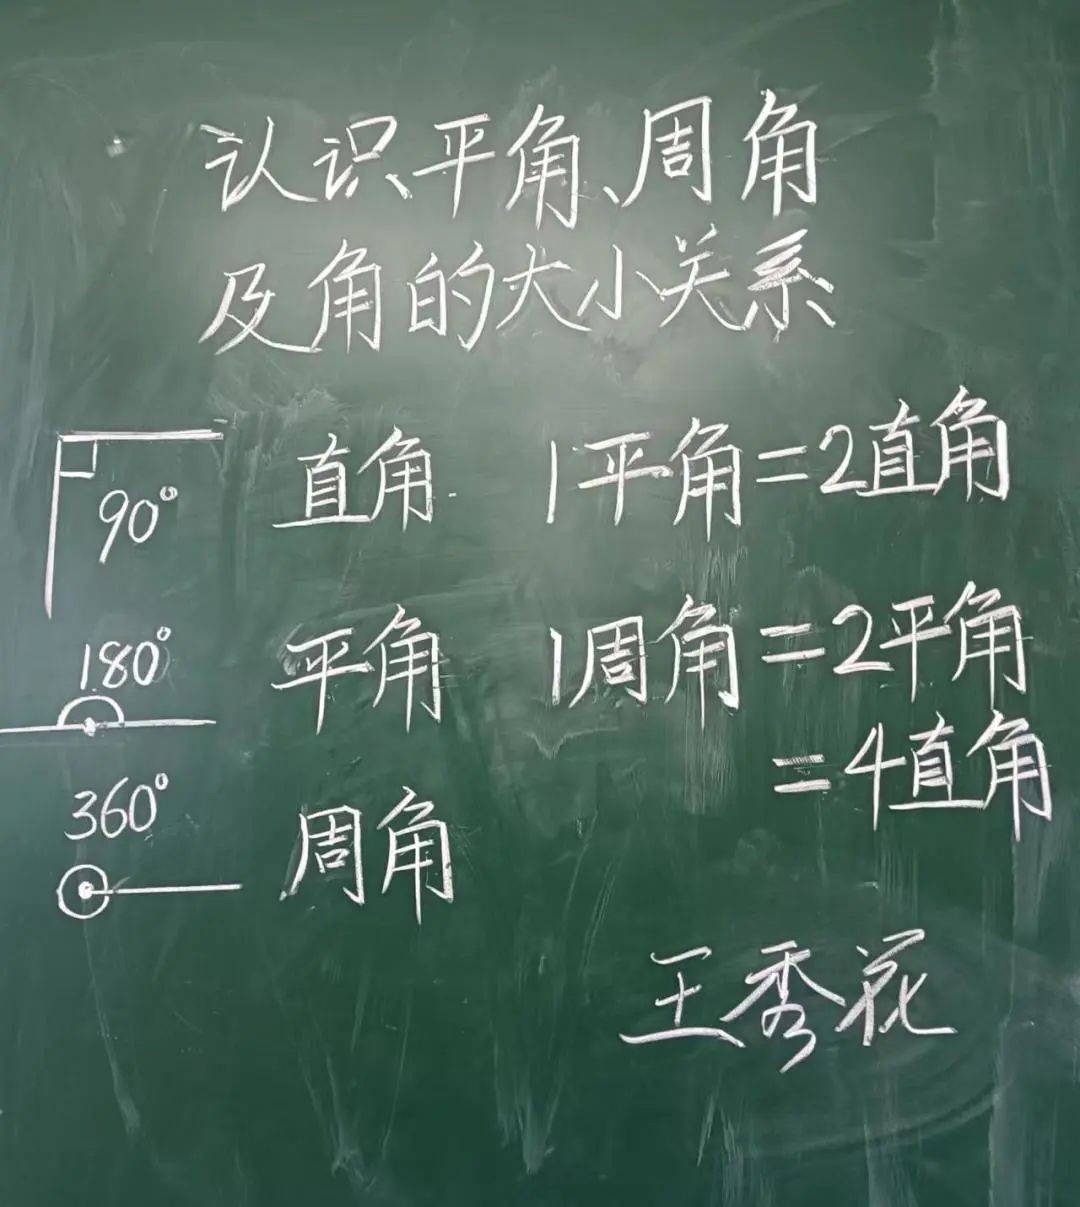 认识平角、周角
及角的大小关系
90° 直角 1平角=2直角
180° 平角 1周角=2平角
=4直角
360° 周角
王秀花